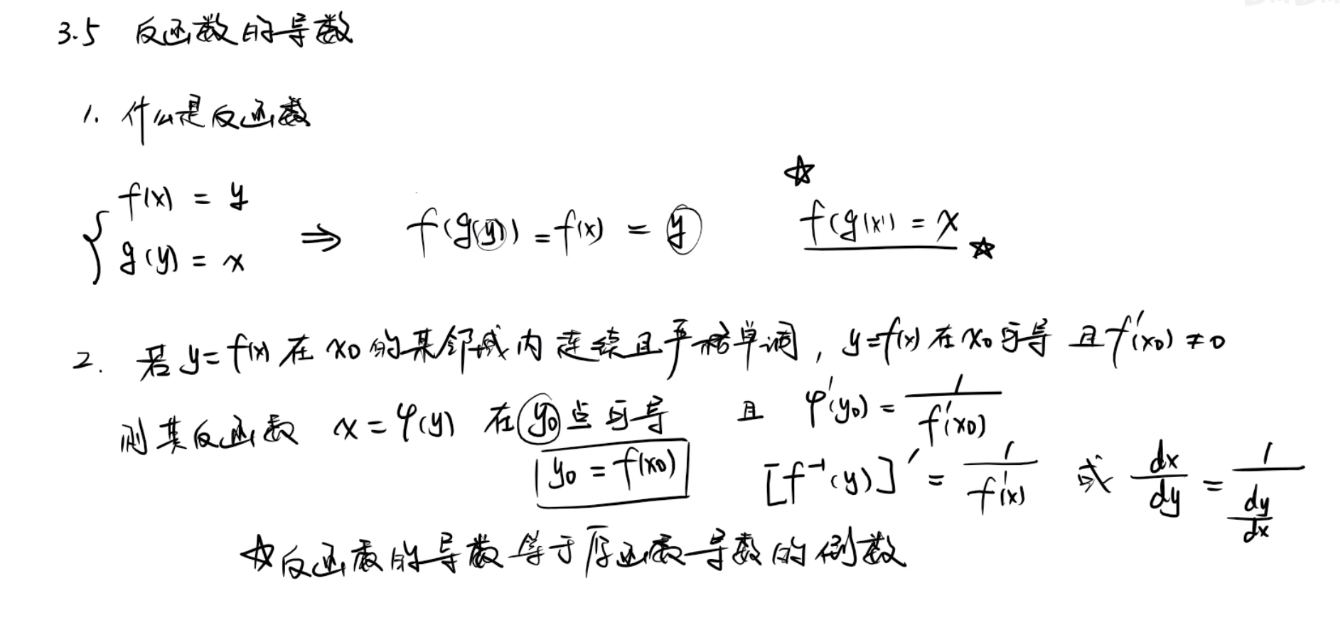 3.5 反函数的导数
1. 什么是反函数
{ f(x) = y
g(y) = x ⇒ f(g(y)) = f(x) = y ☆ f(g(x)) = x ☆
2. 若 y=f(x) 在 x0 的某邻域内 连续且严格单调, y=f(x) 在 x0 可导 且 f'(x0) ≠ 0
则其反函数 x = φ(y) 在 y0 点可导 且 φ'(y0) = 1/f'(x0)
y0 = f(x0) [f⁻¹(y)]' = 1/f'(x) 或 dx/dy = 1/(dy/dx)
☆反函数的导数等于原函数导数的倒数